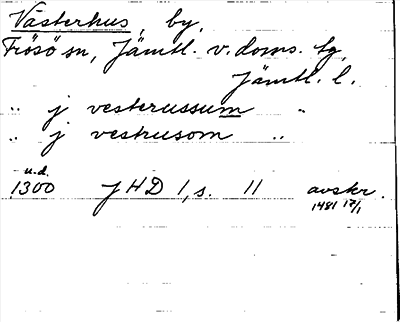 Västerhus, by,
Frösö sn, Jämtl. v. doms. tg,
Jämtl. l.
„ j vesterussum „
„ j vestrusom „
u.d.
1300 JHD 1, s. 11 avskr.
1481 17/1